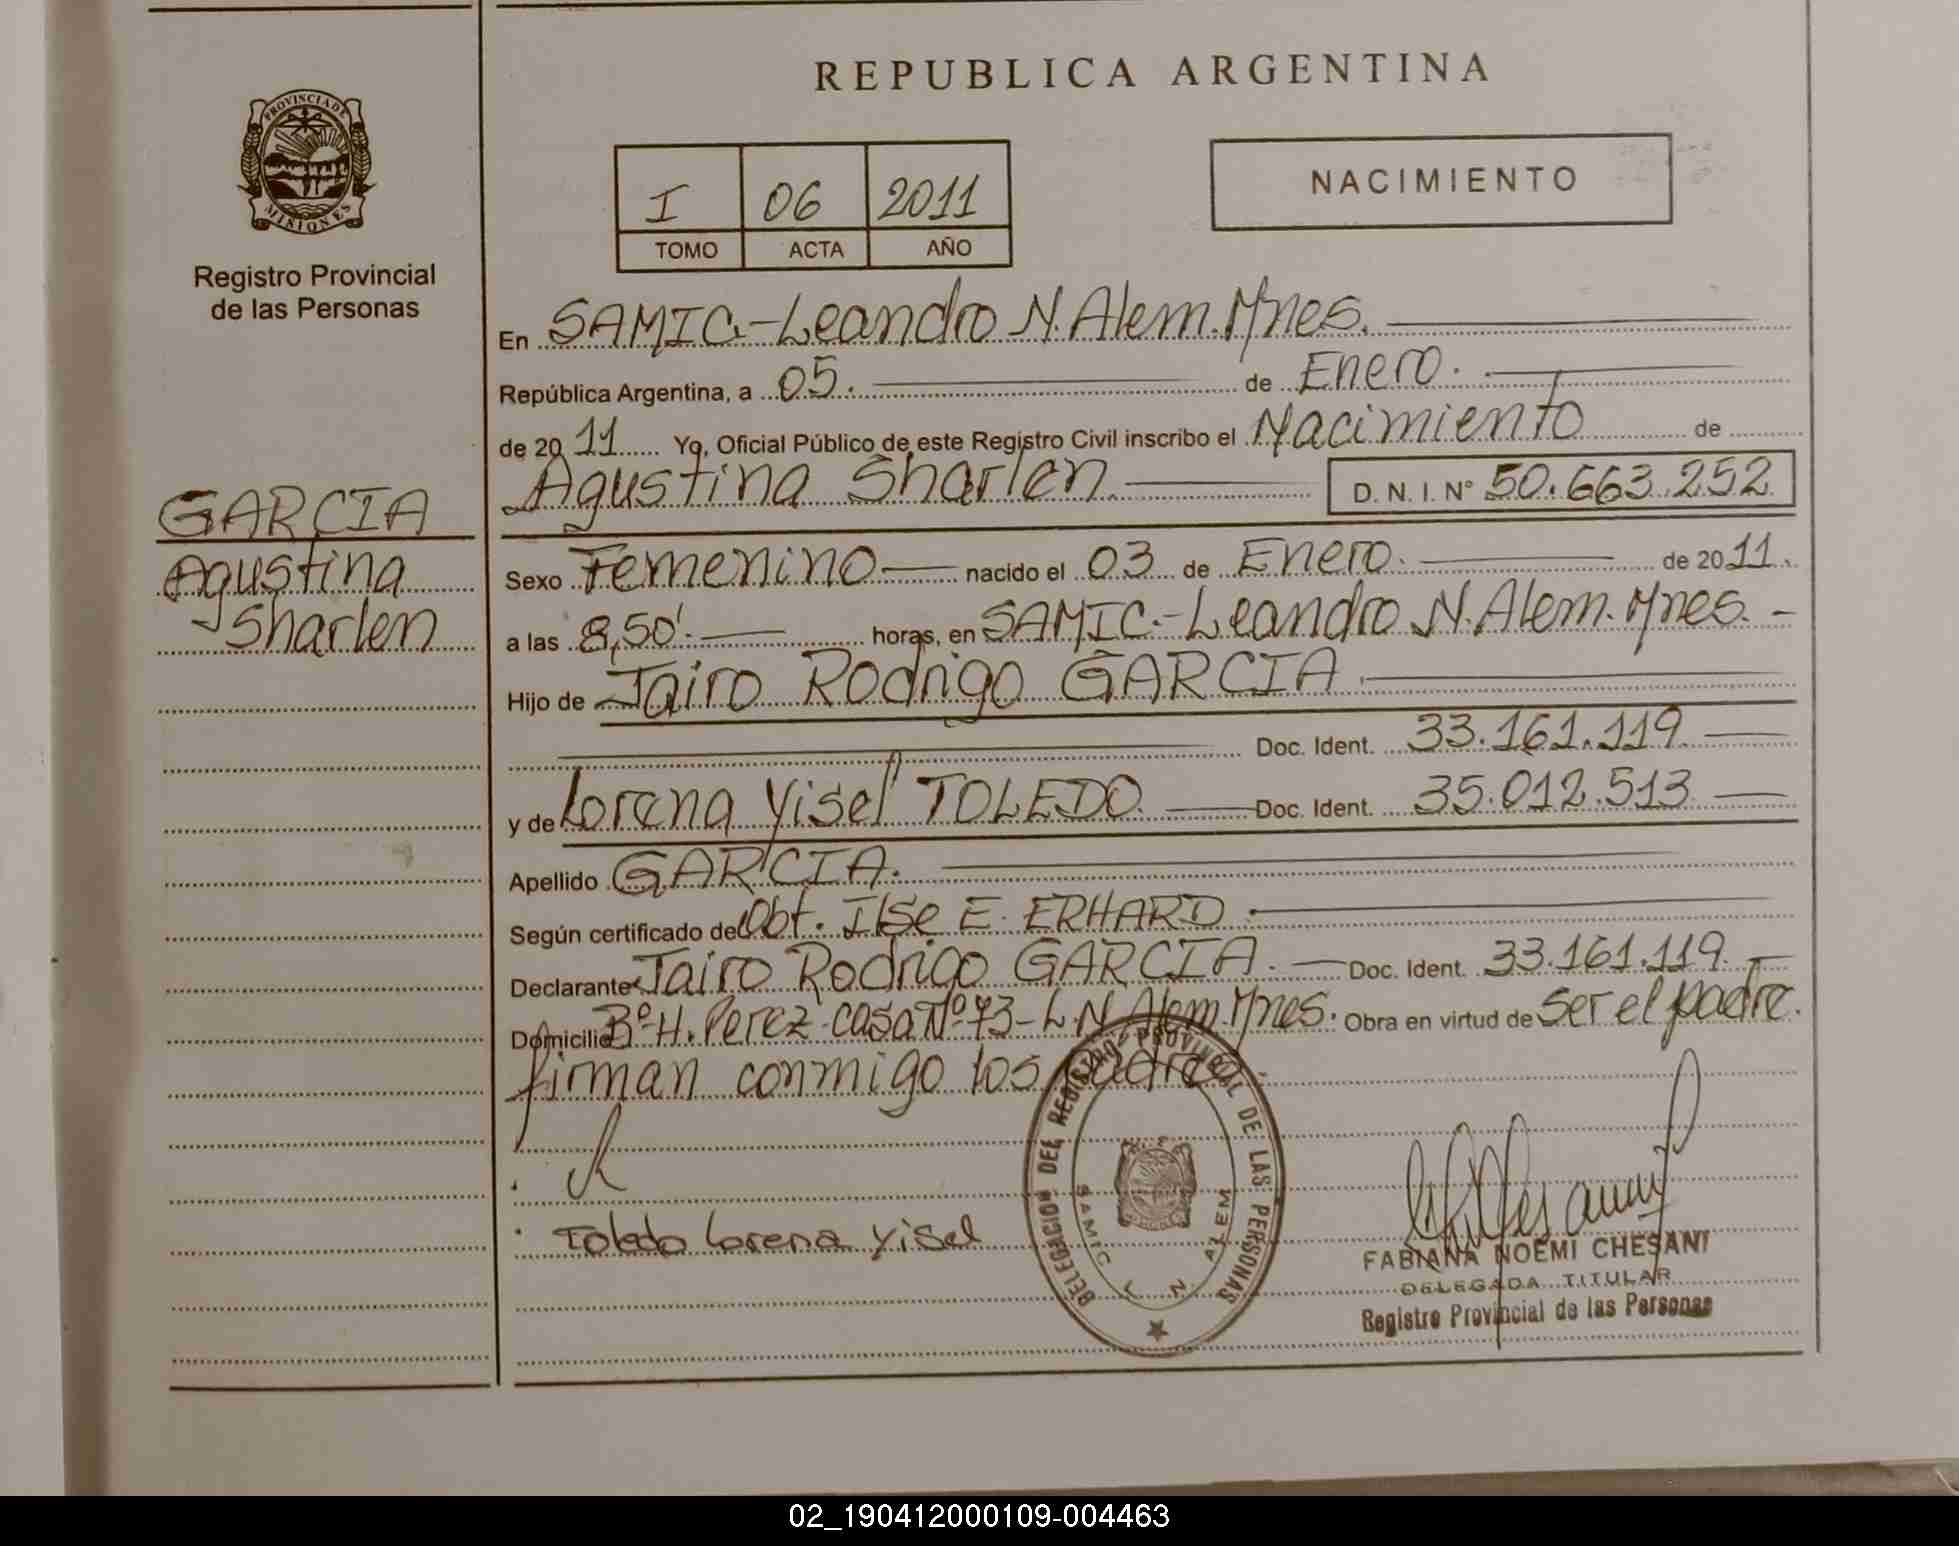 REPUBLICA ARGENTINA
PROVINCIA DE
MISIONES
Registro Provincial
de las Personas
I 06 2011
TOMO ACTA AÑO
NACIMIENTO
En SAMIC.-Leandro N. Alem. Mnes.
República Argentina, a 05. de Enero.
de 2011 Yo, Oficial Público de este Registro Civil inscribo el Nacimiento de
Agustina Sharlen. D. N. I. N° 50.663.252
GARCIA
Agustina
Sharlen
Sexo Femenino nacido el 03 de Enero. de 2011.
a las 8,50'. horas, en SAMIC.-Leandro N. Alem. Mnes. -
Hijo de Jairo Rodrigo GARCIA.
Doc. Ident. 33.161.119
y de Lorena Yisel TOLEDO. Doc. Ident. 35.012.513
Apellido GARCIA.
Según certificado de Obt. Ilse E. ERHARD.
Declarante Jairo Rodrigo GARCIA. Doc. Ident. 33.161.119.
Domicilio Bº-H. Perez-casa Nº 73-L.N. Alem. Mnes. Obra en virtud de ser el padre.
firman conmigo los padres
Toledo Lorena Yisel
DELEGACION DEL REGISTRO PROVINCIAL DE LAS PERSONAS
SAMIC L. N. ALEM
FABIANA NOEMI CHESANI
DELEGADA TITULAR
Registro Provincial de las Personas
02_190412000109-004463